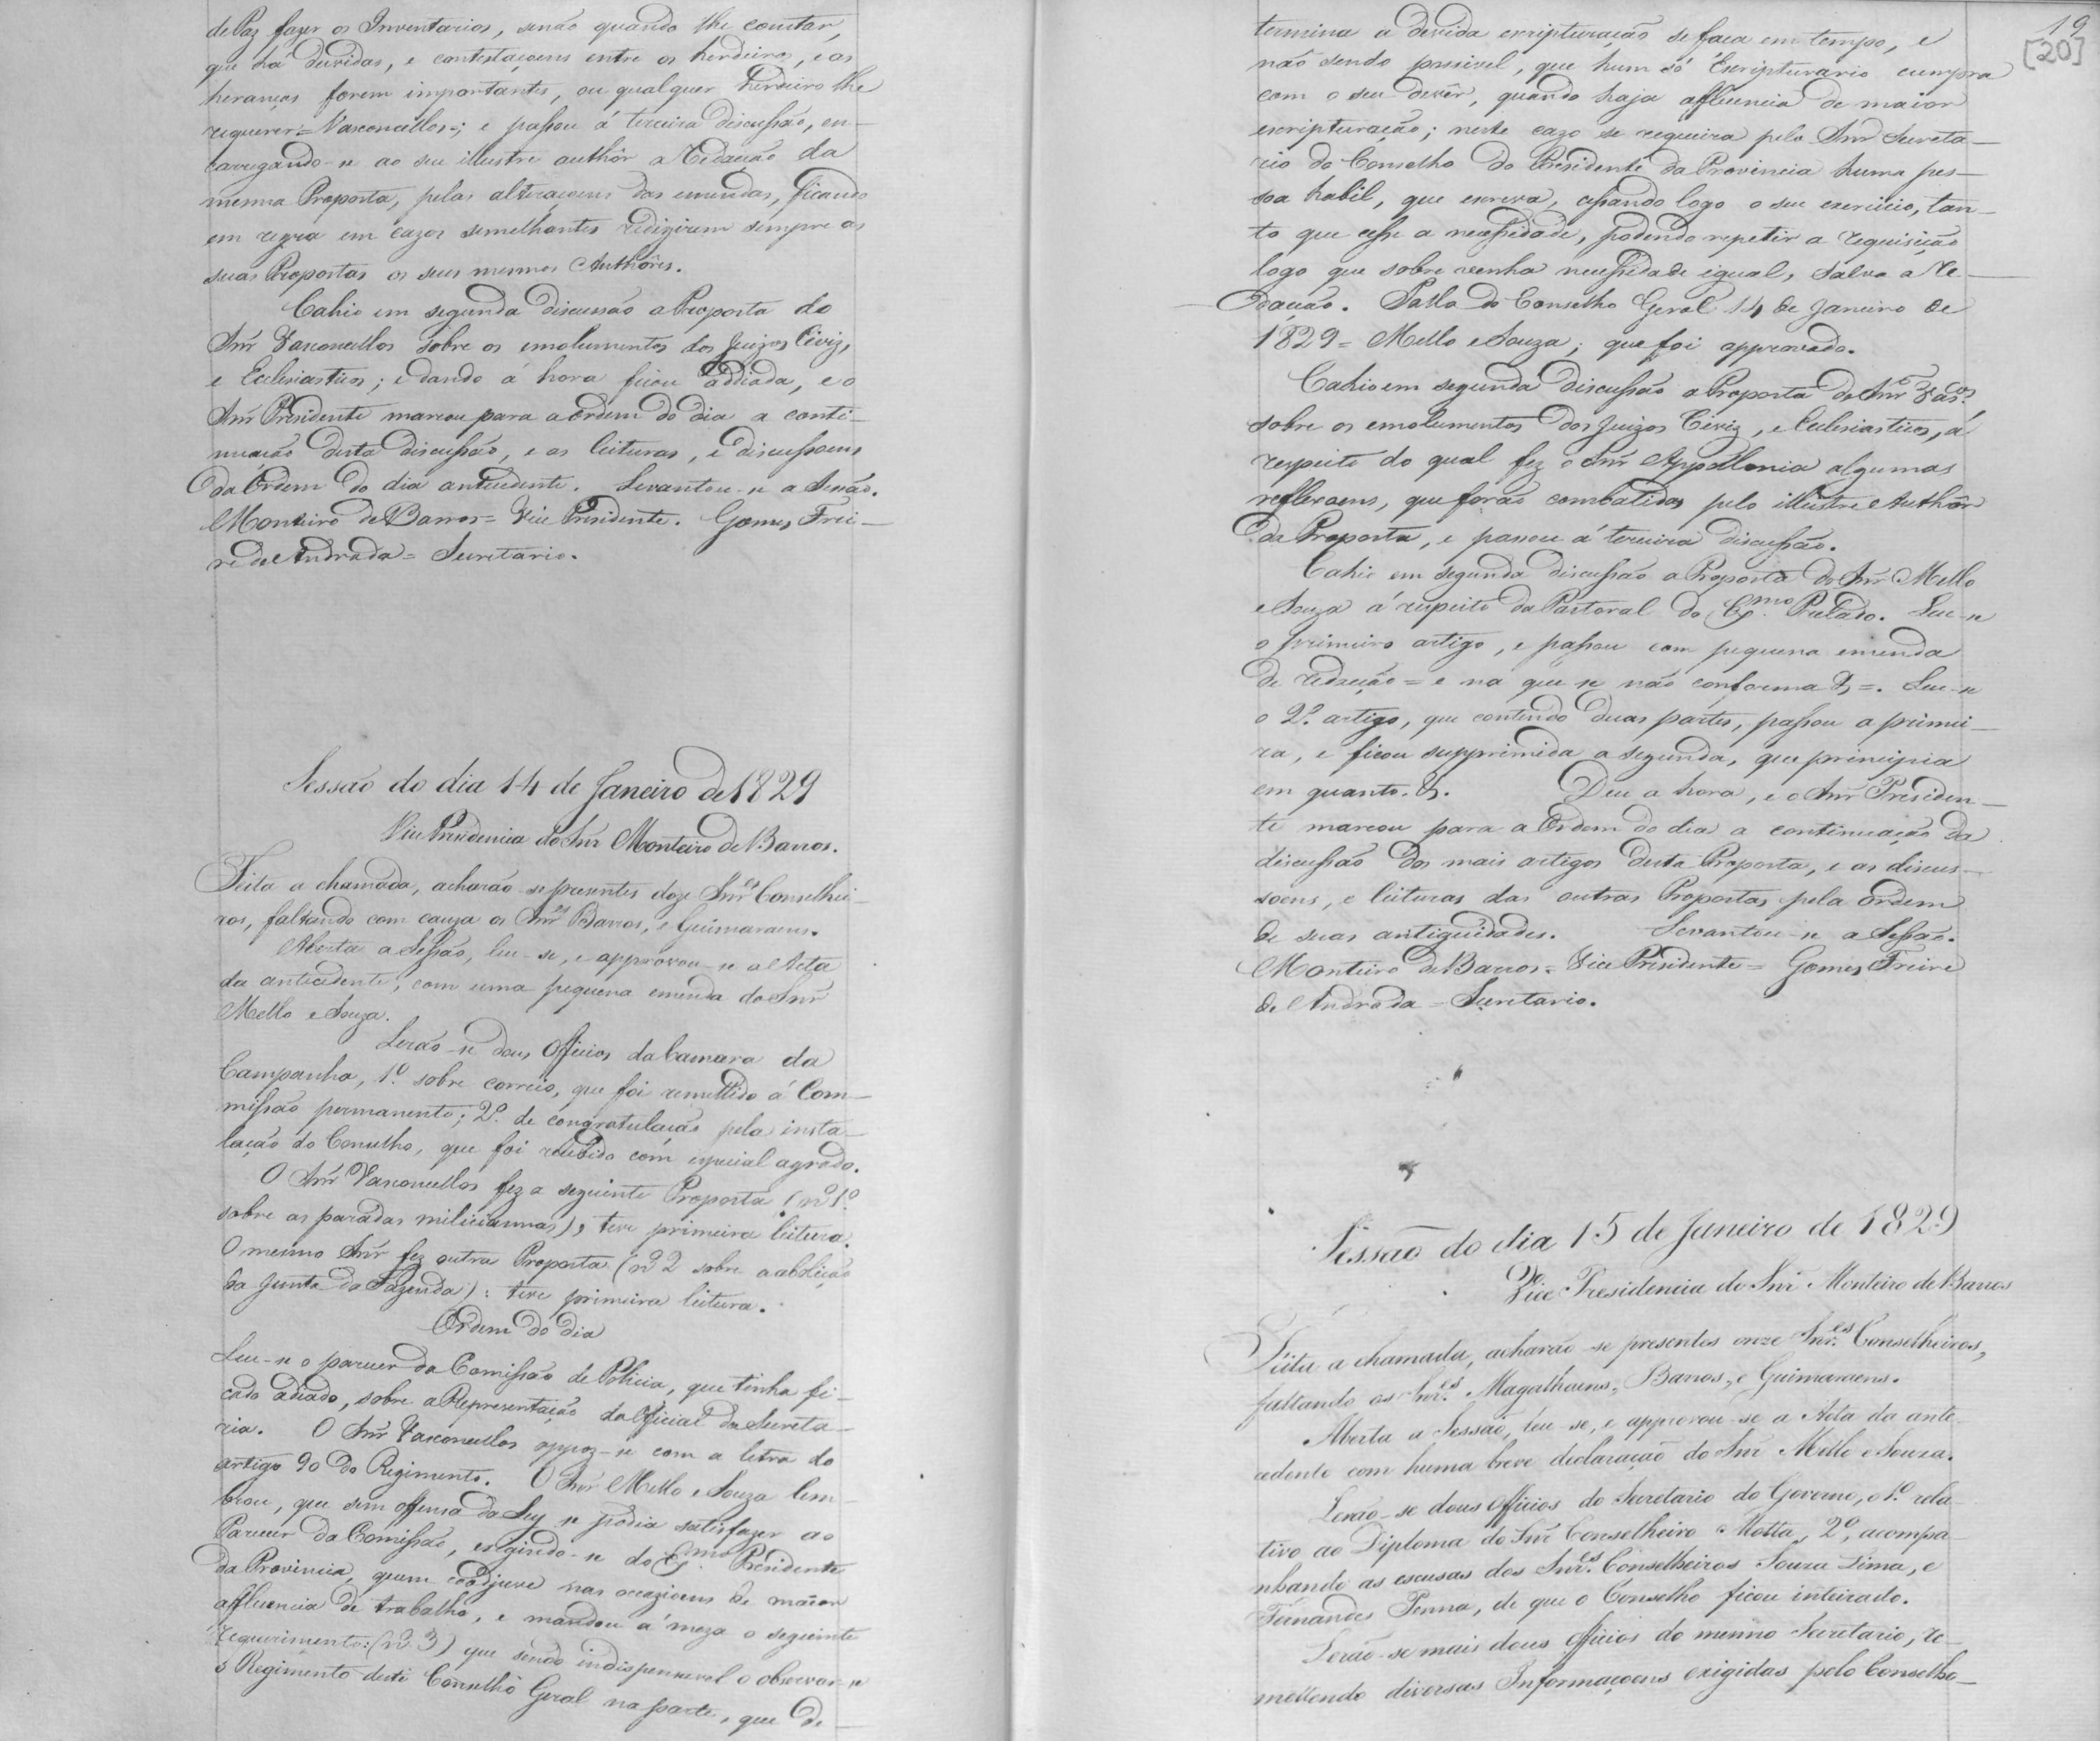 de Paz fazer os Inventarios, senão quando lhe constar,
que há duvidas, e contestaçoens entre os herdeiros, e as
heranças forem importantes, ou qualquer herdeiro lhe
requerer = Vasconcellos =; e passou á terceira discussão, en-
carregando-se ao seu illustre authôr a Redacção da
mesma Proposta, pelas alteraçoens das emendas, ficando
em regra em cazos semelhantes redigirem sempre as
suas Propostas os seus mesmos Authôres.
Cahio em segunda discussão a Proposta do
Snr̃ Vasconcellos sobre os emolumentos dos Juizos Civiz,
e Ecclesiasticos; e dando á hora ficou addiada, e o
Snr̃ Presidente marcou para a ordem do dia a conti-
nuação desta discussão, e as leituras, e discussoens
da Ordem do dia antecedente. Levantou-se a Sessão.
Monteiro de Barros = Vice Presidente. Gomes Frei-
re de Andrada = Secretario.
Sessão do dia 14 de Janeiro de 1829
Vice Presidencia do Snr̃ Monteiro de Barros.
Feita a chamada, acharão-se presentes doze Snr.es Conselhei-
ros, faltando com cauza os Snr.es Barros, e Guimaraens.
Aberta a Sessão, leu-se, e approvou-se a Acta
da antecedente, com uma pequena emenda do Snr̃
Mello e Souza.
Lerão-se dous Officios da Camara da
Campanha, 1.º sobre correio, que foi remettido á Com-
missão permanente; 2.º de congratulação pela insta-
lação do Conselho, que foi recebido com especial agrado.
O Snr̃ Vasconcellos fez a seguinte Proposta (nº 1.º
sobre as paradas milicianas), teve primeira leitura.
O mesmo Snr̃ fez outra Proposta (nº 2 sobre a abolição
da Junta da Fazenda): teve primeira leitura.
Ordem do dia
Leu-se o parecer da Comissão de Policia, que tinha fi-
cado adiado, sobre a Representação do Official da Secreta-
ria. O Snr̃ Vasconcellos oppoz-se com a letra do
artigo 90 do Regimento. O Snr̃ Mello e Souza lem-
brou, que sem offensa da Ley se podia satisfazer ao
Parecer da Comissão, exigindo-se do Ex.mo Presidente
da Provincia, quem coadjuve nas occazioens de maior
affluencia de trabalho, e mandou á meza o seguinte
requerimento: (nº 3) que sendo indispensavel o observar-se
o Regimento deste Conselho Geral na parte, que de-
19
[20]
termina a devida escripturação se faca em tempo, e
não sendo possivel, que hum só Escripturario cumpra
com o seu devêr, quando haja affluencia de maior
escripturação; neste cazo se requeira pelo Snr̃ Secreta-
rio do Conselho do Presidente da Provincia huma pes-
soa habil, que escreva, cessando logo o seu exercicio, tan-
to que cesse a necessidade, podendo repetir a requisição
logo que sobre venha necessidade igual, salva a Re-
dacção. Salla do Conselho Geral 14 de Janeiro de
1829 = Mello e Souza; que foi approvado.
Cahio em segunda discussão a Proposta do Snr̃ Vas.cos
sobre os emolumentos dos Juizos Civiz, e Ecclesiasticos, á
respeito do qual fez o Snr̃ Appollonia algumas
reflexoens, que forão combatidas pelo illustre Authôr
da Proposta, e passou á terceira discussão.
Cahio em segunda discussão a Proposta do Snr̃ Mello
e Souza á respeito da Pastoral do Ex.mo Prelado. Leu-se
o primeiro artigo, e passou com pequena emenda
de redacção = e na que se não conforma &=. Leu-se
o 2.º artigo, que contendo duas partes, passou a primei-
ra, e ficou supprimida a segunda, que principia
em quanto. &. Deu a hora, e o Snr̃ Presiden-
te marcou para a Ordem do dia a continuação da
discussão dos mais artigos desta Proposta, e as discus-
soens, e leituras das outras Propostas pela ordem
de suas antiguidades. Levantou-se a Sessão.
Monteiro de Barros = Vice Presidente = Gomes Freire
de Andrada = Secretario.
Sessão do dia 15 de Janeiro de 1829
Vice Presidencia do Snr̃ Monteiro de Barros
Feita a chamada, acharão-se presentes onze Snr.es Conselheiros,
faltando os Snr.es Magalhaens, Barros, e Guimaraens.
Aberta a Sessão, leu-se, e approvou-se a Acta da ante
cedente com huma breve declaração do Snr̃ Mello e Souza.
Lerão-se dous Officios do Secretario do Governo, o 1.º rela-
tivo ao Diploma do Snr̃ Conselheiro Motta, 2.º, acompa
nhando as escusas dos Snr.es Conselheiros Souza Lima, e
Fernandes Penna, de que o Conselho ficou inteirado.
Lerão-se mais dous Officios do mesmo Secretario, re-
mettendo diversas Informaçoens exigidas pelo Conselho-